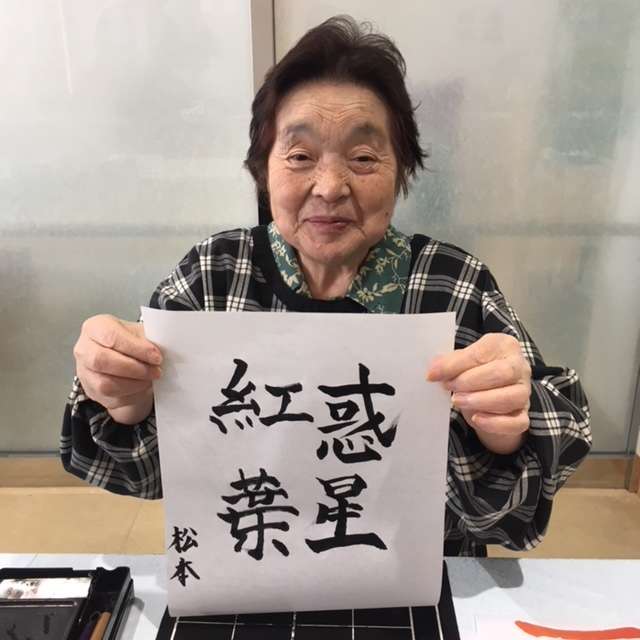 惑星
紅葉
松本